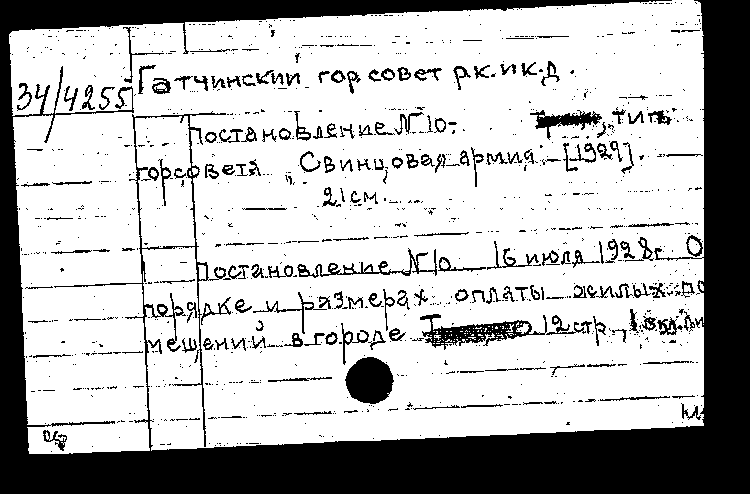 34/4255
Гатчинский гор.совет р.к.ик.д.
Постановление №10.-, тип.
горсовета „Свинцовая армия" [1929].
21см.
Постановление №10 16 июля 1928г. О
порядке и размерах оплаты жилых по
мещений в городе 12 стр., 1 вкл.ли